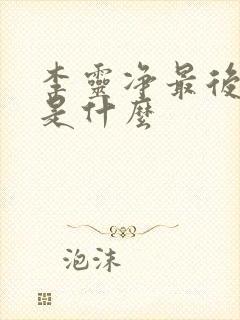 李靈净最後
是什麼
泡沫